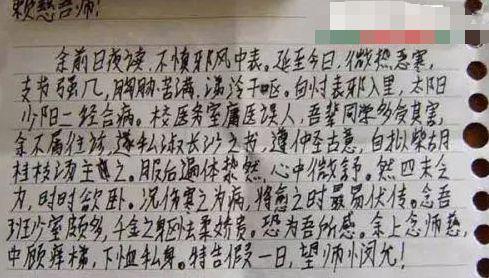 赖慈吾师:
余前日夜读,不慎邪风中表。延至今日,微热恶寒,
支节强几,胸胁苦满,涕泠干呕。自忖表邪入里,太阳
少阳二经合病。校医务室庸医误人,吾辈同学多受其害,
余不屑往诊,遂私淑长沙之书,遵仲圣古意,自拟柴胡
桂枝汤主之。服后遍体漐然,心中微舒。然四末乏
力,时时欲卧。况伤寒之为病,将愈之时最易伏传。念吾
班少室颇多,千金之躯怯柔娇贵。恐为吾所感。余上念师慈,
中顾释梯,下恤私身。特告假一日,望师小闵允!